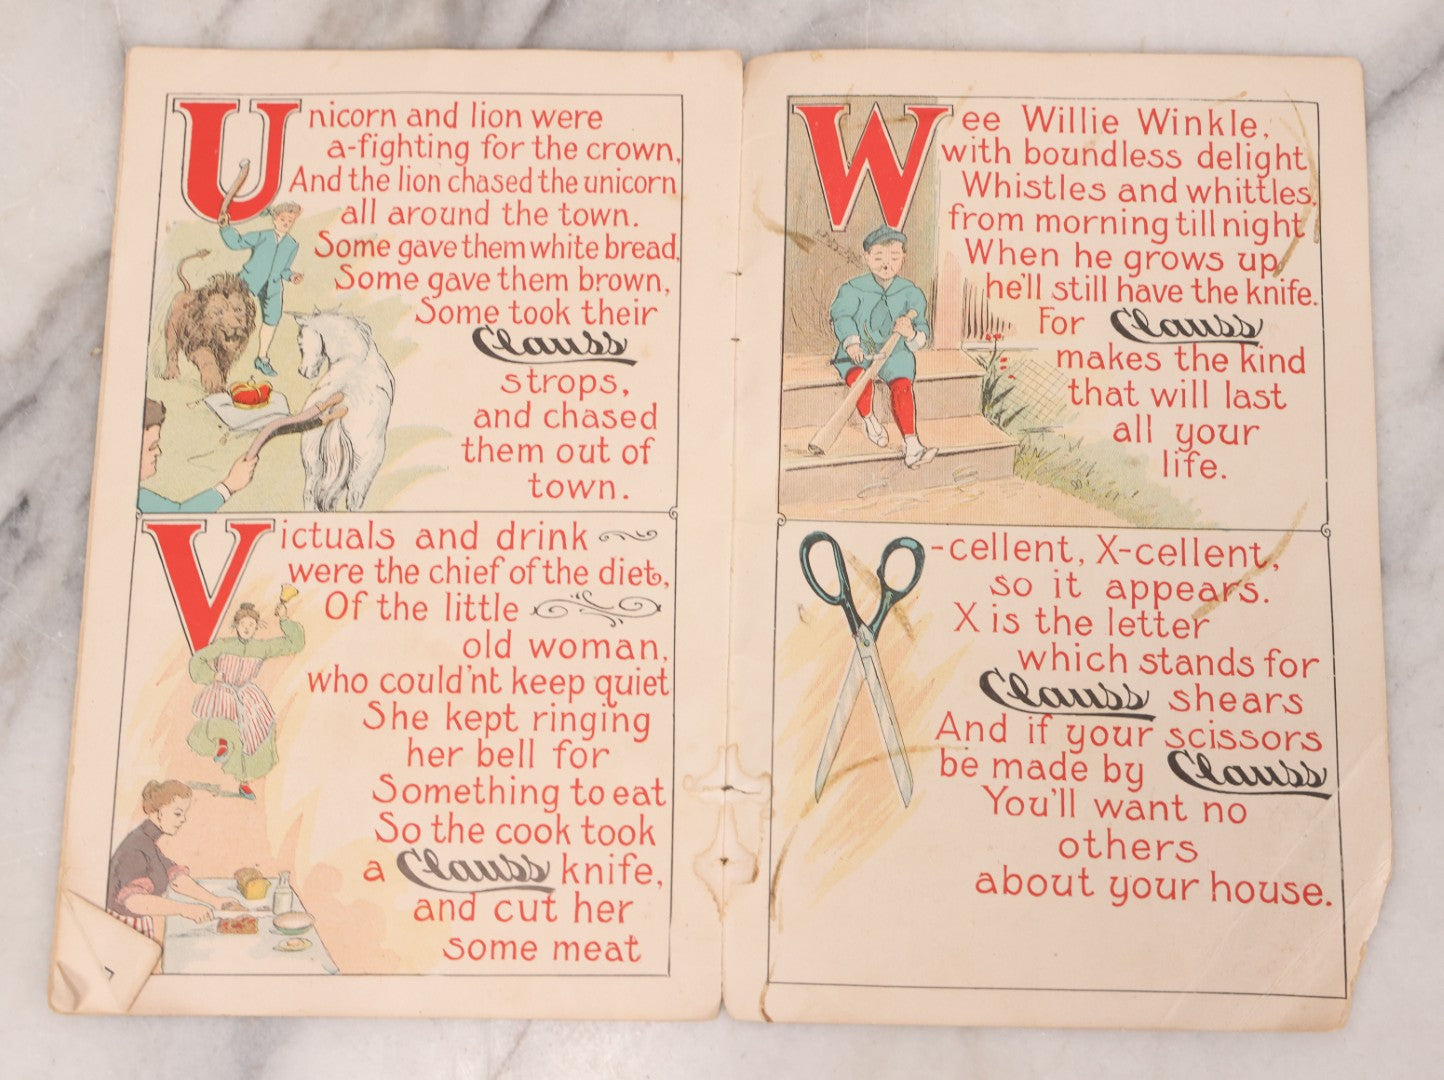 Unicorn and lion were
a-fighting for the crown,
And the lion chased the unicorn
all around the town.
Some gave them white bread,
Some gave them brown,
Some took their
Clauss
strops,
and chased
them out of
town.
Victuals and drink
were the chief of the diet,
Of the little
old woman,
who could'nt keep quiet
She kept ringing
her bell for
Something to eat
So the cook took
a Clauss knife,
and cut her
some meat
Wee Willie Winkle,
with boundless delight
Whistles and whittles,
from morning till night
When he grows up,
he'll still have the knife.
For Clauss
makes the kind
that will last
all your
life.
X-cellent, X-cellent,
so it appears.
X is the letter
which stands for
Clauss shears
And if your scissors
be made by Clauss
You'll want no
others
about your house.